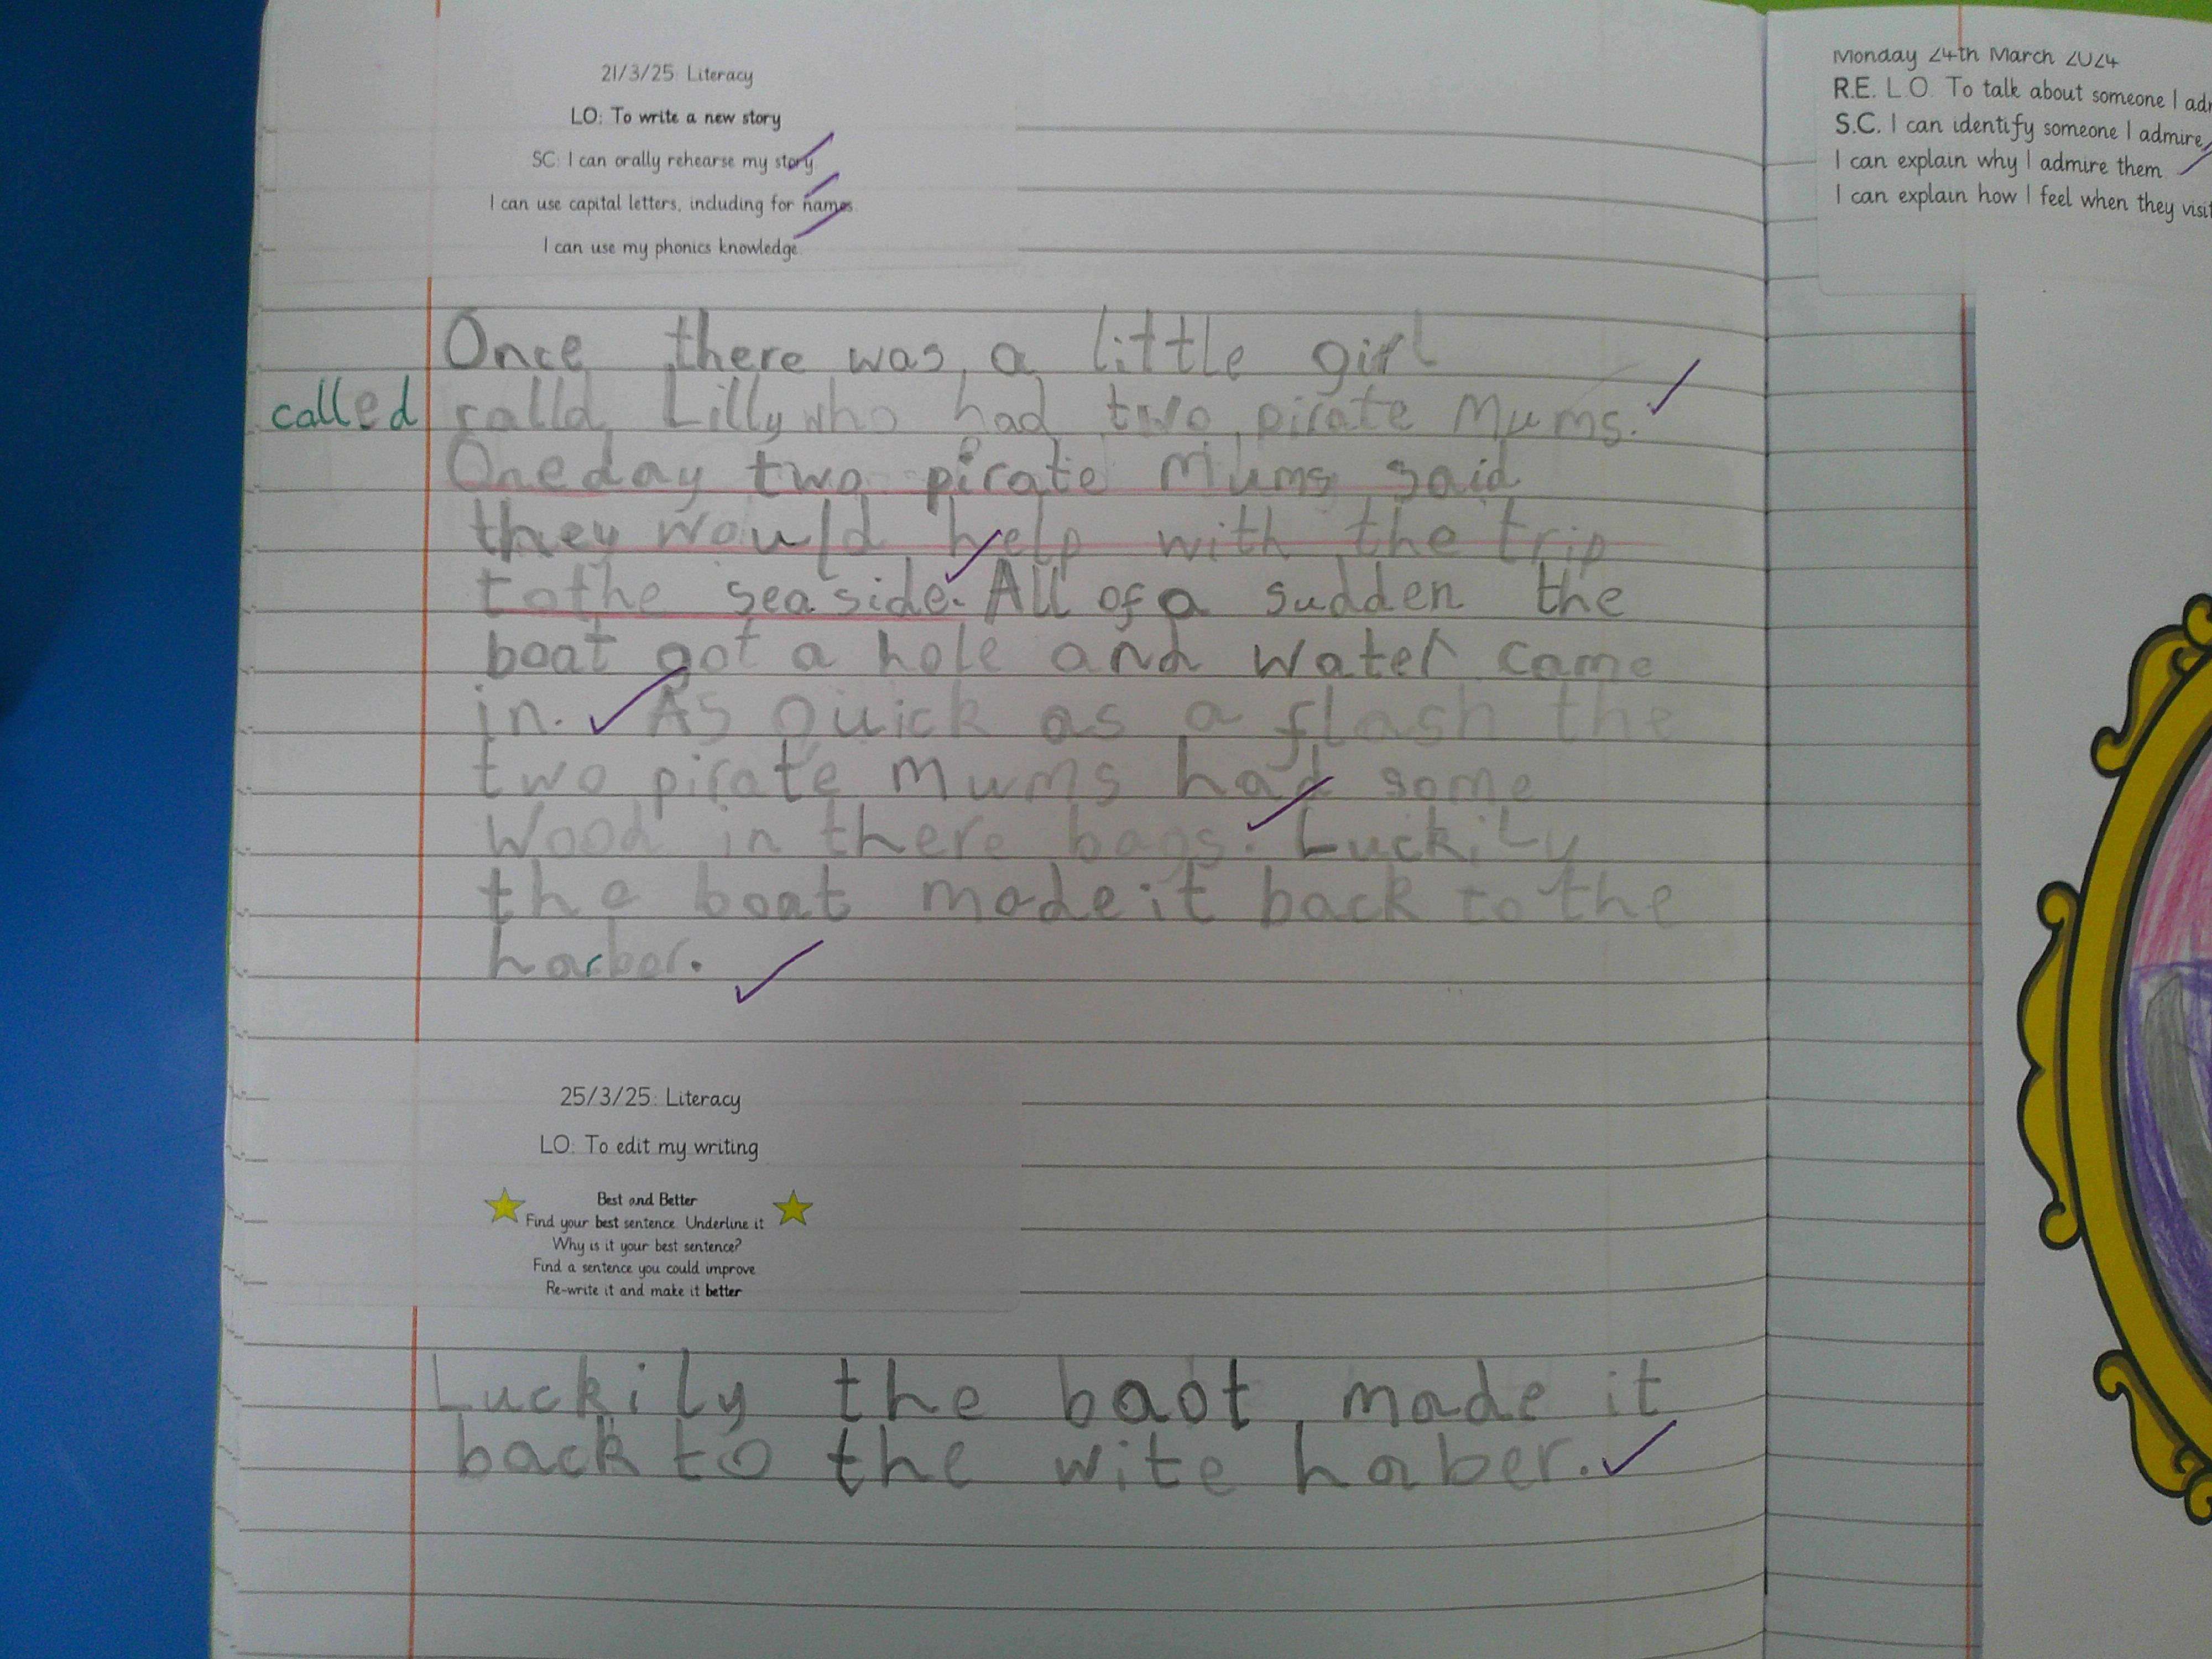 21/3/25: Literacy
LO: To write a new story
SC: I can orally rehearse my story
I can use capital letters, including for names
I can use my phonics knowledge
Once there was a little girl
called calld Lilly who had two pirate Mums.
One day two pirate Mums said
they would help with the trip
to the sea side. All of a sudden the
boat got a hole and water came
in. As quick as a flash the
two pirate Mums had some
wood in there bags. Luckily
the boat made it back to the
harber.
25/3/25: Literacy
LO: To edit my writing
Best and Better
Find your best sentence. Underline it
Why is it your best sentence?
Find a sentence you could improve
Re-write it and make it better
Luckily the baot made it
back to the wite haber.
Monday 24th March 2024
R.E. L.O. To talk about someone I
S.C. I can identify someone I admire
I can explain why I admire them
I can explain how I feel when they visit